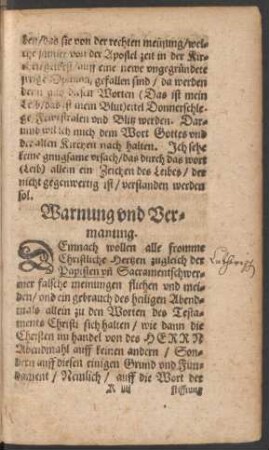 ben/das sie von der rechten meinung/wel-
che jmmer von der Apostel zeit in der Kir-
chen gewest/auff eine newe vngegründete
Opinion, gefallen sind / da werden
denn auß diesen Worten (Das ist mein
Leib/das ist mein Blut) eitel Donnerschle-
ge Fewrstralen vnd Blitz werden. Dar-
umb wil ich mich dem Wort Gottes vnd
der alten Kirchen nach halten. Ich sehe
keine gnugsame vrsach/das durch das wort
(Leib) allein ein Zeichen des Leibes / der
nicht gegenwertig ist / verstanden werden
sol.
Warnung vnd Ver-
manung.
DEmnach wollen alle fromme
Christliche Hertzen zugleich der
Papisten vñ Sacramentschwer-
mer falsche meinungen fliehen vnd mei-
den/vnd ein gebrauch des heiligen Abend-
mals allein zu den Worten des Testa-
ments Christi sich halten / wie dann die
Christen im handel von des HERRN
Abendmahl auff keinen andern / Son-
dern auff diesen einigen Grund vnd Fün-
dament / Nemlich / auff die Wort der